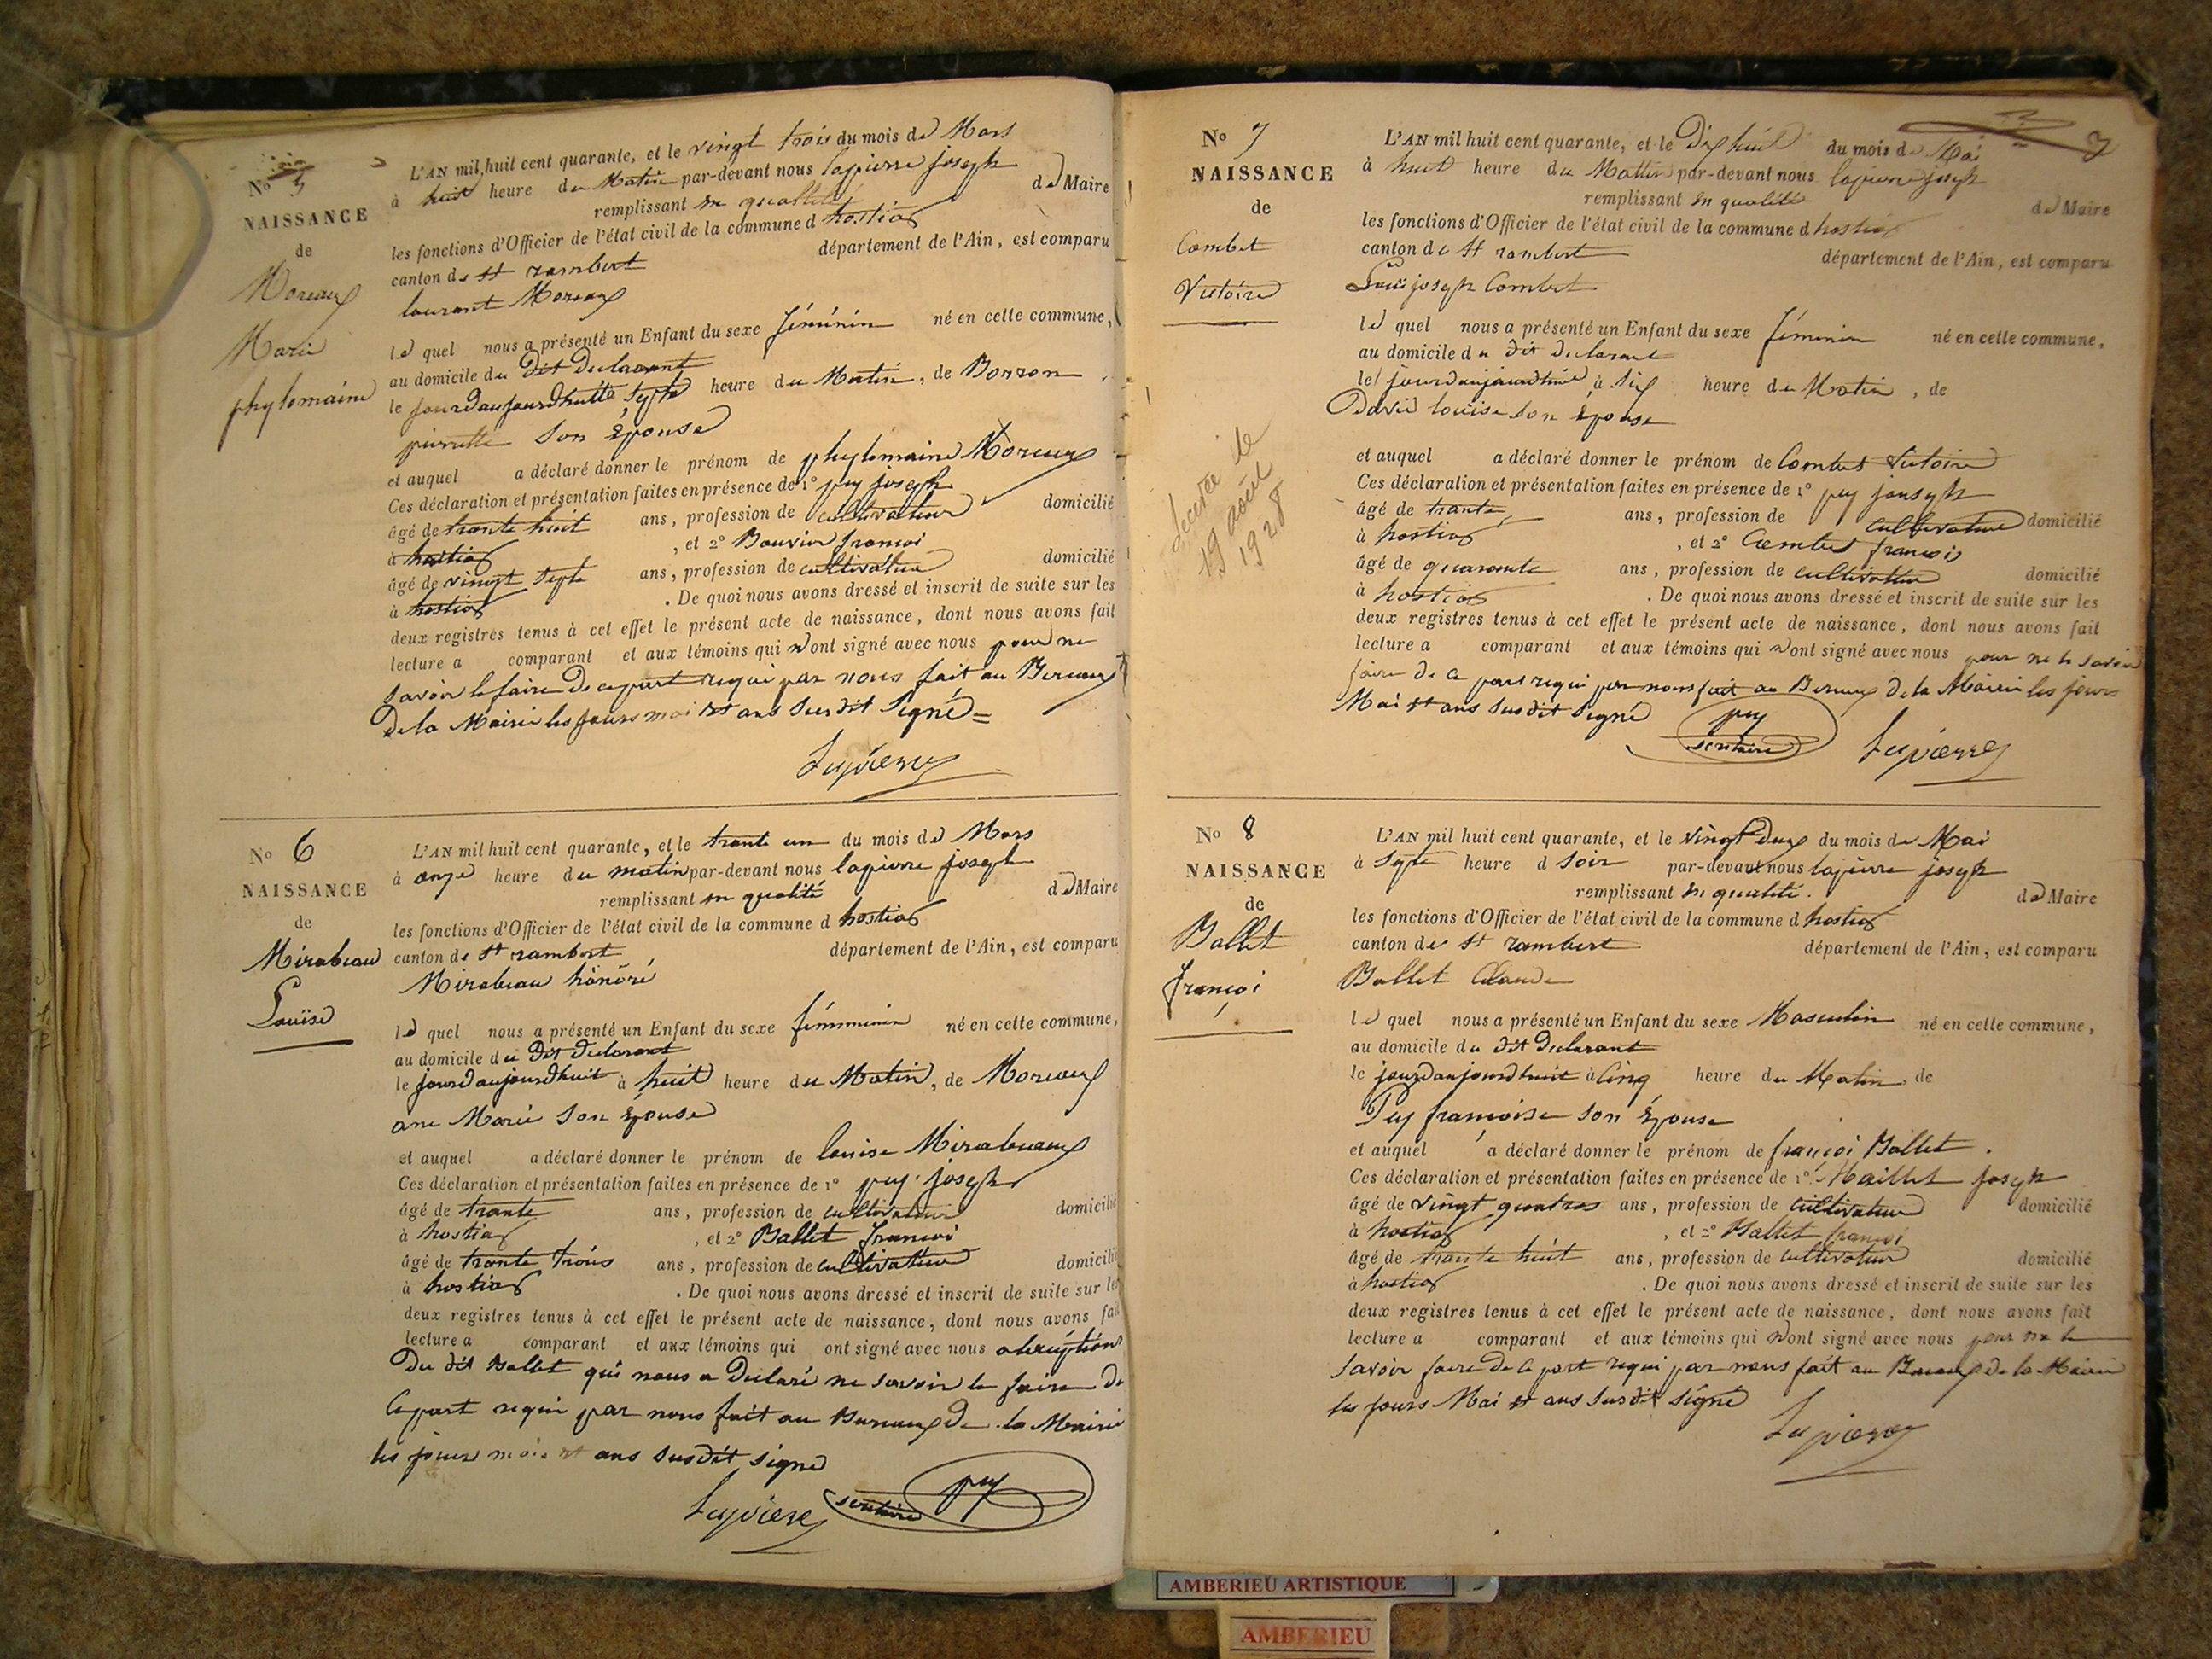 No 5
NAISSANCE
de
Moreaux
Marie
phylomaine
L'AN mil huit cent quarante, et le vingt trois du mois de Mars
à huit heure du Matin par-devant nous lapierre joseph
remplissant en quallité de Maire
les fonctions d'Officier de l'état civil de la commune d hostias
canton de st rambert département de l'Ain, est comparu
laurant Moreaux
le quel nous a présenté un Enfant du sexe féminin né en cette commune,
au domicile du dit declarant
le jourdaujourdhuit à septe heure du Matin, de Borron
pierrette son épouse
et auquel a déclaré donner le prénom de phylomaine Moreaux
Ces déclaration et présentation faites en présence de 1° puy joseph
âgé de trante huit ans, profession de cultivateur domicilié
à hostias, et 2° Bouvier françoi
âgé de vingt septe ans, profession de cultivateur domicilié
à hostias. De quoi nous avons dressé et inscrit de suite sur les
deux registres tenus à cet effet le présent acte de naissance, dont nous avons fait
lecture a comparant et aux témoins qui n'ont signé avec nous pour ne
savoir le faire de ce part requi par nous fait au Bureaux
de la Mairie les jours moi et ans susdit signé
Lapierre
No 6
NAISSANCE
de
Mirabeau
Louise
L'AN mil huit cent quarante, et le trante un du mois de Mars
à onze heure du matin par-devant nous lapierre joseph
remplissant en qualité de Maire
les fonctions d'Officier de l'état civil de la commune d hostias
canton de st rambert département de l'Ain, est comparu
Mirabeau honoré
le quel nous a présenté un Enfant du sexe fémminin né en cette commune,
au domicile du dit declarant
le jourdaujourdhuit à huit heure du Matin, de Moreaux
ane Marie son épouse
et auquel a déclaré donner le prénom de louise Mirabeaux
Ces déclaration et présentation faites en présence de 1° puy joseph
âgé de trante ans, profession de cultivateur domicilié
à hostias, et 2° Ballet françoi
âgé de trante trois ans, profession de cultivateur domicilié
à hostias. De quoi nous avons dressé et inscrit de suite sur les
deux registres tenus à cet effet le présent acte de naissance, dont nous avons fait
lecture a comparant et aux témoins qui ont signé avec nous
du dit Ballet qui nous a declaré ne savoir le faire de
ce part requi par nous fait au Bureaux de la Mairie
les jours mois et ans susdit signé
Lapierre puy
No 7
NAISSANCE
de
Combet
Victoire
décédée le
19 août
1928
7
L'AN mil huit cent quarante, et le dix huit du mois de Mai
à huit heure du Mattin par-devant nous lapierre joseph
remplissant en qualité de Maire
les fonctions d'Officier de l'état civil de la commune d hostias
canton de st rambert département de l'Ain, est comparu
Louis joseph Combet
le quel nous a présenté un Enfant du sexe féminin né en cette commune,
au domicile du dit declarant
le jourdaujourdhuit à six heure du Matin, de
David louise son épouse
et auquel a déclaré donner le prénom de Combet Victoire
Ces déclaration et présentation faites en présence de 1° puy jouseph
âgé de trante ans, profession de cultivateur domicilié
à hostias, et 2° Combet françois
âgé de quarante ans, profession de cultivateur domicilié
à hostias. De quoi nous avons dressé et inscrit de suite sur les
deux registres tenus à cet effet le présent acte de naissance, dont nous avons fait
lecture a comparant et aux témoins qui n'ont signé avec nous pour ne le savoir
faire de ce part requi par nous fait au Bureaux de la Mairie les jours
Mai et ans susdit signé puy
Lapierre
No 8
NAISSANCE
de
Ballet
françoi
L'AN mil huit cent quarante, et le vingt deux du mois de Mai
à septe heure d soir par-devant nous lapierre joseph
remplissant en qualité. de Maire
les fonctions d'Officier de l'état civil de la commune d hostias
canton de st rambert département de l'Ain, est comparu
Ballet Claude
le quel nous a présenté un Enfant du sexe Masculin né en cette commune,
au domicile du dit declarant
le jourdaujourdhuit à cinq heure du Matin, de
Puy françoise son épouse
et auquel a déclaré donner le prénom de françoi Ballet.
Ces déclaration et présentation faites en présence de 1° Maillet joseph
âgé de vingt quatres ans, profession de cultivateur domicilié
à hostias, et 2° Ballet françoi
âgé de trante huit ans, profession de cultivateur domicilié
à hostias. De quoi nous avons dressé et inscrit de suite sur les
deux registres tenus à cet effet le présent acte de naissance, dont nous avons fait
lecture a comparant et aux témoins qui n'ont signé avec nous pour ne le
savoir faire de ce part requi par nous fait au Bureaux de la Mairie
les jours Mai et ans susdit signé
Lapierre
AMBERIEU ARTISTIQUE
AMBERIEU